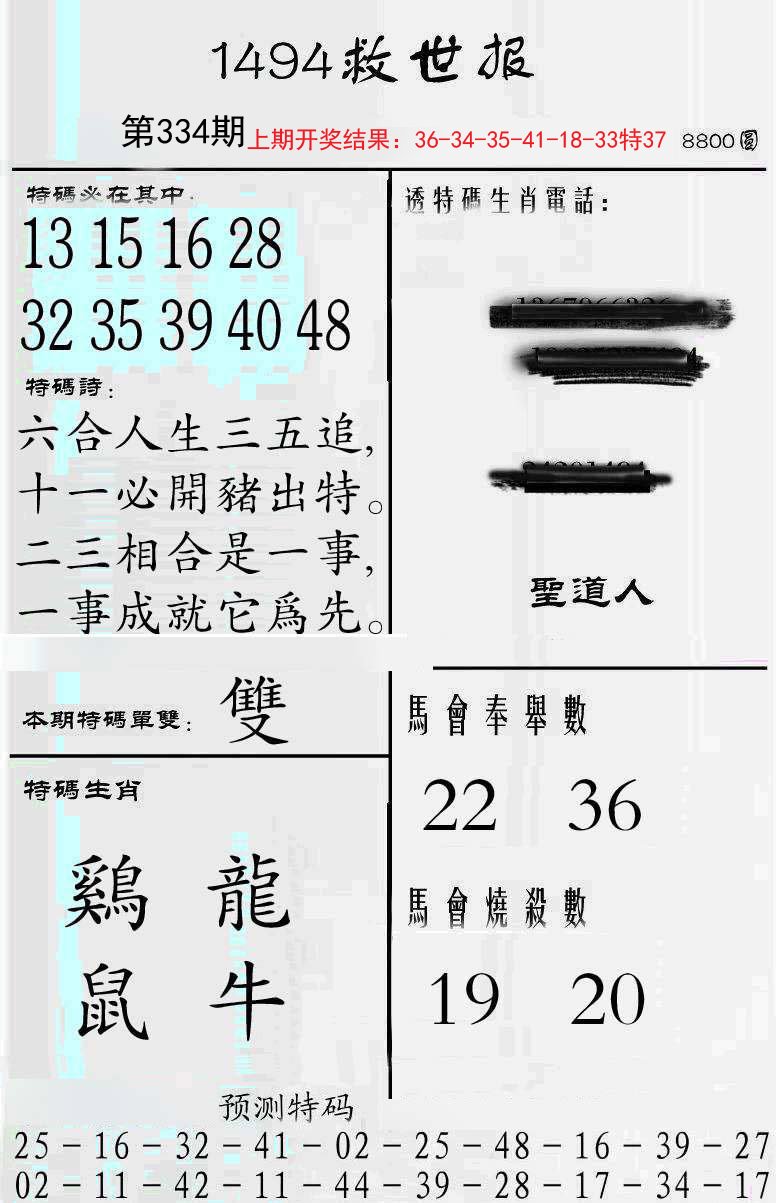 1494救世报
第334期上期开奖结果：36-34-35-41-18-33特37 8800圓
特碼必在其中.
13 15 16 28
32 35 39 40 48
特碼詩：
六合人生三五追,
十一必開豬出特。
二三相合是一事,
一事成就它爲先。
本期特碼單雙：雙
特碼生肖
鷄 龍
鼠 牛
透特碼生肖電話：
聖道人
馬會奉舉數
22 36
馬會燒殺數
19 20
预测特码
25－16－32－41－02－25－48－16－39－27
02－11－42－11－44－39－28－17－34－17